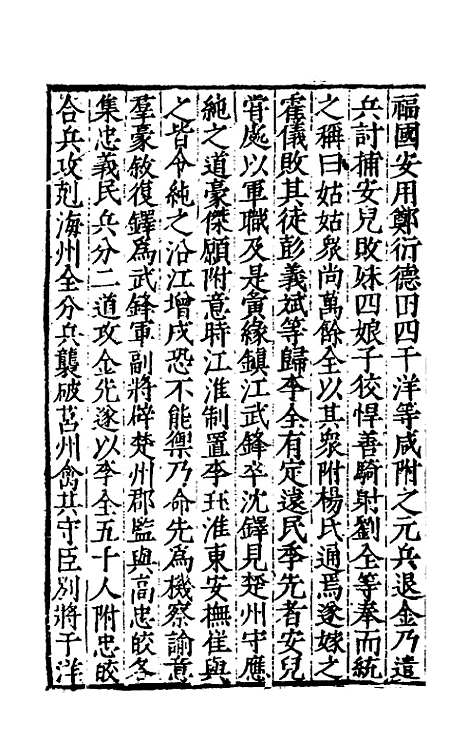 福國安用鄭衍德田四于洋等咸附之元兵退金乃遣
兵討捕安兒敗妹四娘子狡悍善騎射劉全等奉而統
之稱曰姑姑衆尚萬餘全以其衆附楊氏通焉遂嫁之
霍儀敗其徒彭義斌等歸李全有定遠民季先者安兒
甞處以軍職及是夤緣鎮江武鋒卒沈鐸見楚州守應
純之道豪傑願附意時江淮制置李珏淮東安撫崔與
之皆令純之沿江增戍恐不能禦乃命先為機察諭意
羣豪敘復鐸為武鋒軍副將辟楚州郡監與高忠皎各
集忠義民兵分二道攻金先遂以李全五千人附忠皎
合兵攻剋海州全分兵襲破莒州禽其守臣別將于洋